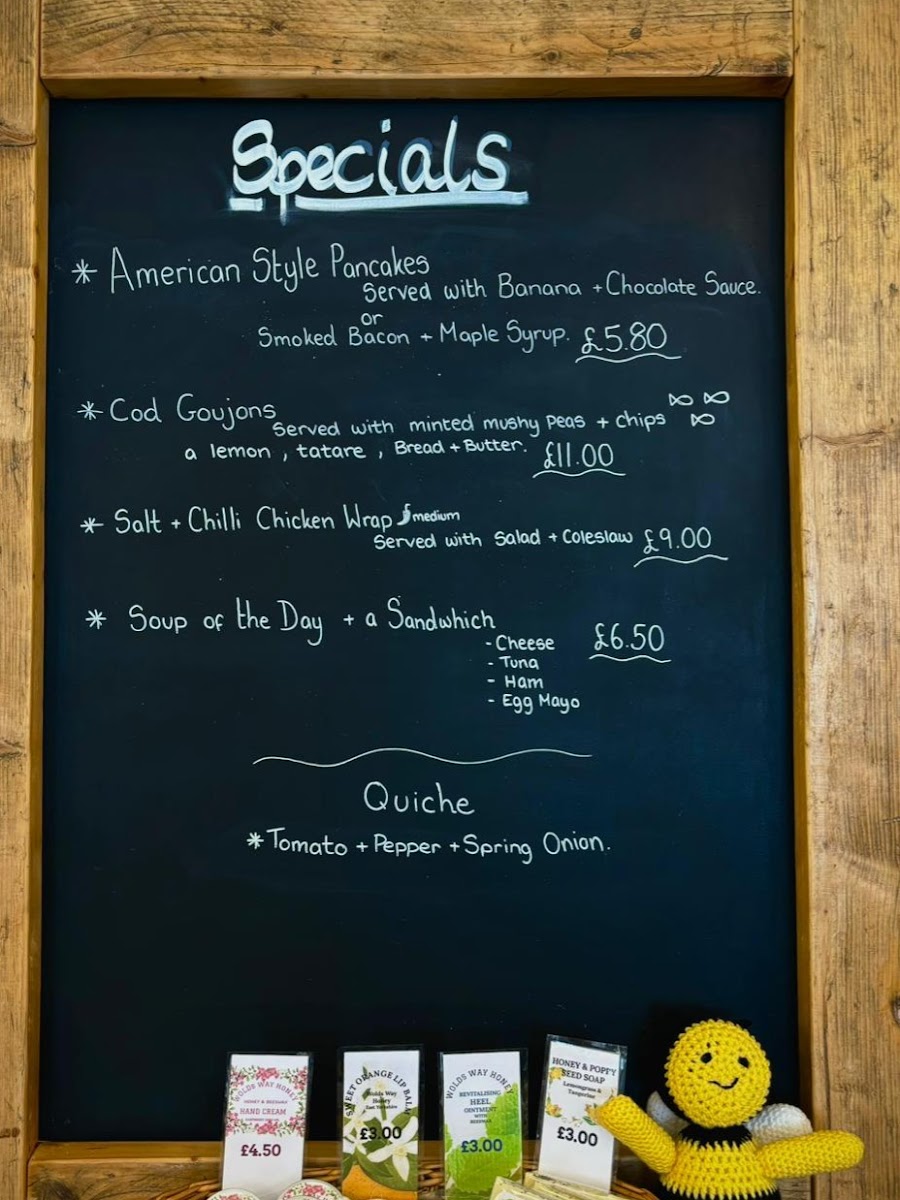 Specials
* American Style Pancakes
Served with Banana + Chocolate Sauce.
or
Smoked Bacon + Maple Syrup. £5.80
* Cod Goujons
Served with minted mushy peas + chips
a lemon, tatare, Bread + Butter. £11.00
* Salt + Chilli Chicken Wrap medium
Served with Salad + Coleslaw £9.00
* Soup of the Day + a Sandwhich £6.50
- Cheese
- Tuna
- Ham
- Egg Mayo
Quiche
* Tomato + Pepper + Spring Onion.
WOLDS WAY HONEY
HONEY & BEESWAX
HAND CREAM
£4.50
SWEET ORANGE LIP BALM
Wolds Way
Honey
East Yorkshire
£3.00
WOLDS WAY HONEY
REVITALISING
HEEL
OINTMENT
WITH
BEESWAX
£3.00
HONEY & POPPY
SEED SOAP
Lemongrass &
Tangerine
£3.00